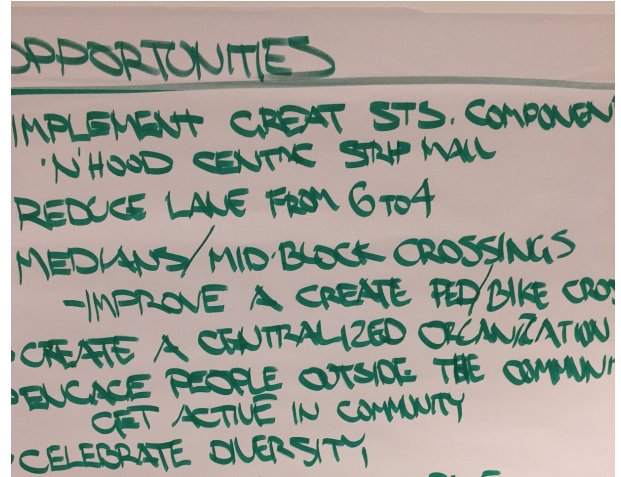 OPPORTUNITIES
IMPLEMENT GREAT STS. COMPONENT
'N'HOOD CENTRIC STRIP MALL
REDUCE LANE FROM 6 TO 4
MEDIANS/MID-BLOCK CROSSINGS
-IMPROVE A CREATE PED/BIKE CROS
CREATE A CENTRALIZED ORGANIZATION
ENGAGE PEOPLE OUTSIDE THE COMMUNI
GET ACTIVE IN COMMUNITY
CELEBRATE DIVERSITY